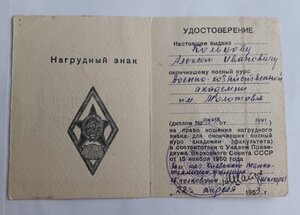 Нагрудный знак
УДОСТОВЕРЕНИЕ
Настоящее выдано
Кольцову
Алексею Ивановичу
окончившему полный курс
Военно-хозяйственной
академии
им. Молотова
(диплом № 1942 г.)
на право ношения нагрудного
знака для окончивших полный
курс академии (факультета)
в соответствии с Указом Прези-
диума Верховного Совета СССР
от 15 ноября 1950 года
22 апреля